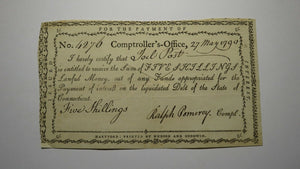 FOR THE PAYMENT OF
No. 4276 Comptroller's-Office, 27 May 179
I hereby certify that Joel Post
is entitled to receive the Sum of FIVE SHILLINGS
Lawful Money, out of any Funds appropriated for the
Payment of interest on the liquidated Debt of the State of
Connecticut.
Five Shillings Ralph Pomeroy Compt.
HARTFORD: PRINTED BY HUDSON AND GOODWIN.